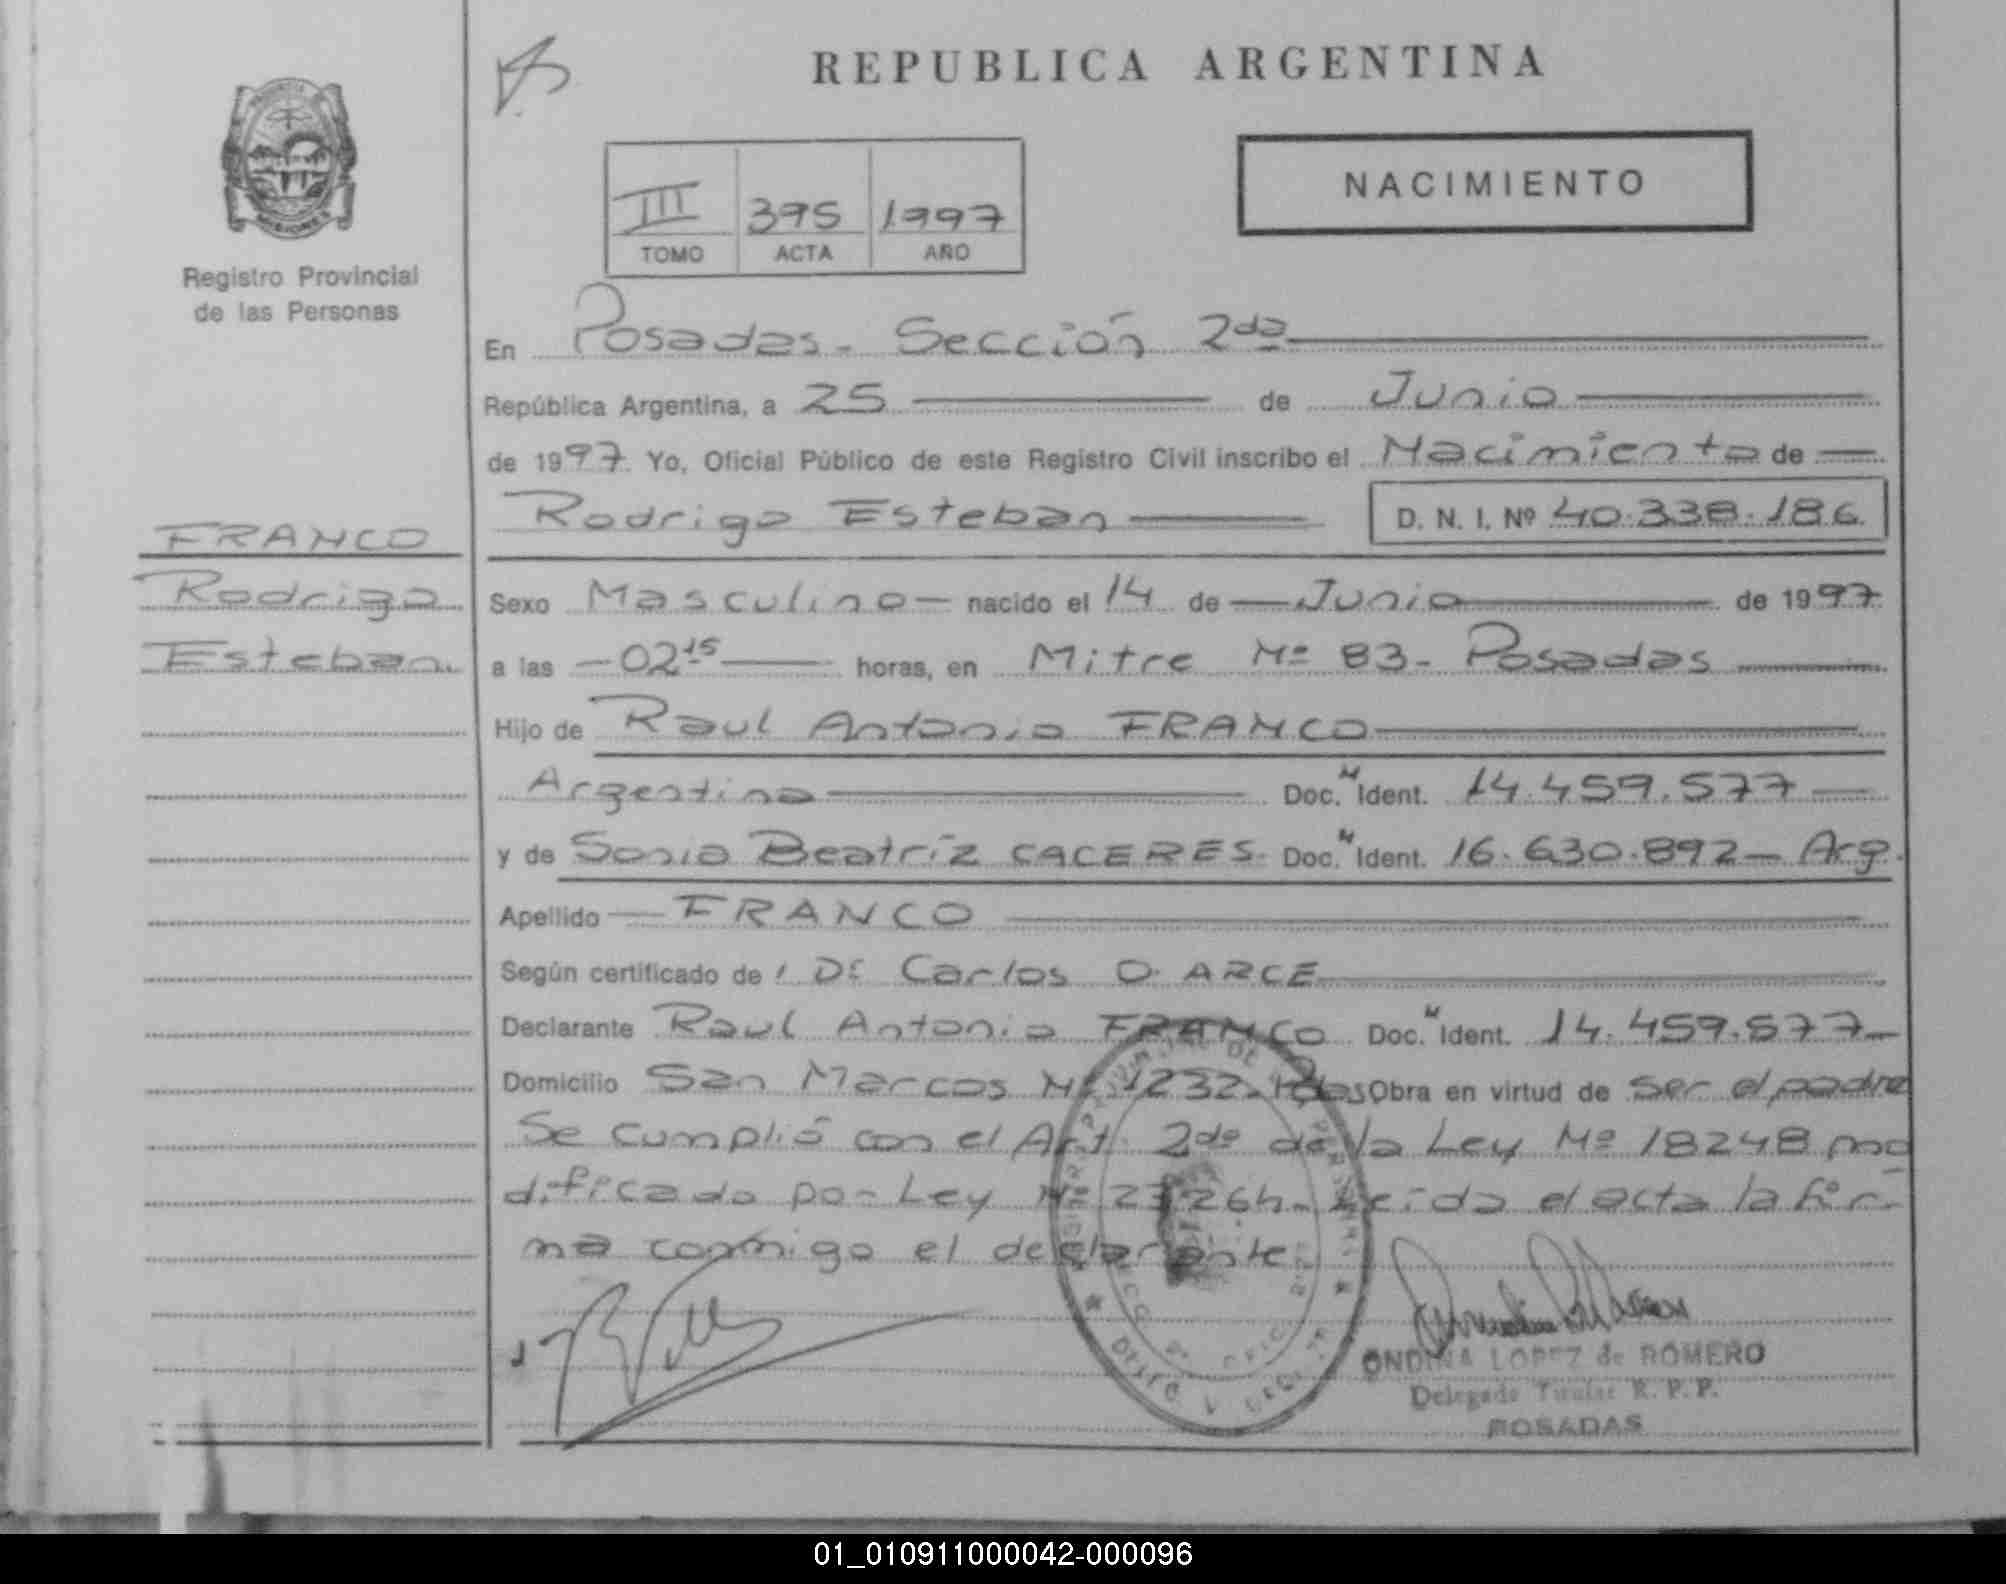 REPUBLICA ARGENTINA
NACIMIENTO
III 395 1997
TOMO ACTA AÑO
MISIONES
Registro Provincial
de las Personas
FRANCO
Rodrigo
Esteban.
En Posadas - Sección 2da
República Argentina, a 25 de Junio
de 1997. Yo, Oficial Público de este Registro Civil inscribo el Nacimiento de
Rodrigo Esteban D. N. I. Nº 40.338.186
Sexo Masculino nacido el 14 de Junio de 1997
a las 02 15 horas, en Mitre Nº 83 - Posadas
Hijo de Raul Antonio FRANCO
Argentino Doc. N Ident. 14.459.577
y de Sonia Beatríz CACERES - Doc. N Ident. 16.630.892 - Arg.
Apellido FRANCO
Según certificado de Dr Carlos O. ARCE
Declarante Raul Antonio FRANCO Doc. N Ident. 14.459.577 -
Domicilio San Marcos Nº 1232 - Pdas Obra en virtud de ser el padre
Se cumplió con el Art. 2do de la Ley Nº 18248 mo
dificado por Ley Nº 23264 - Leida el acta la fir-
ma conmigo el declarante
ONDINA LOPEZ de ROMERO
Delegado Titular R. P. P.
POSADAS
01_010911000042-000096